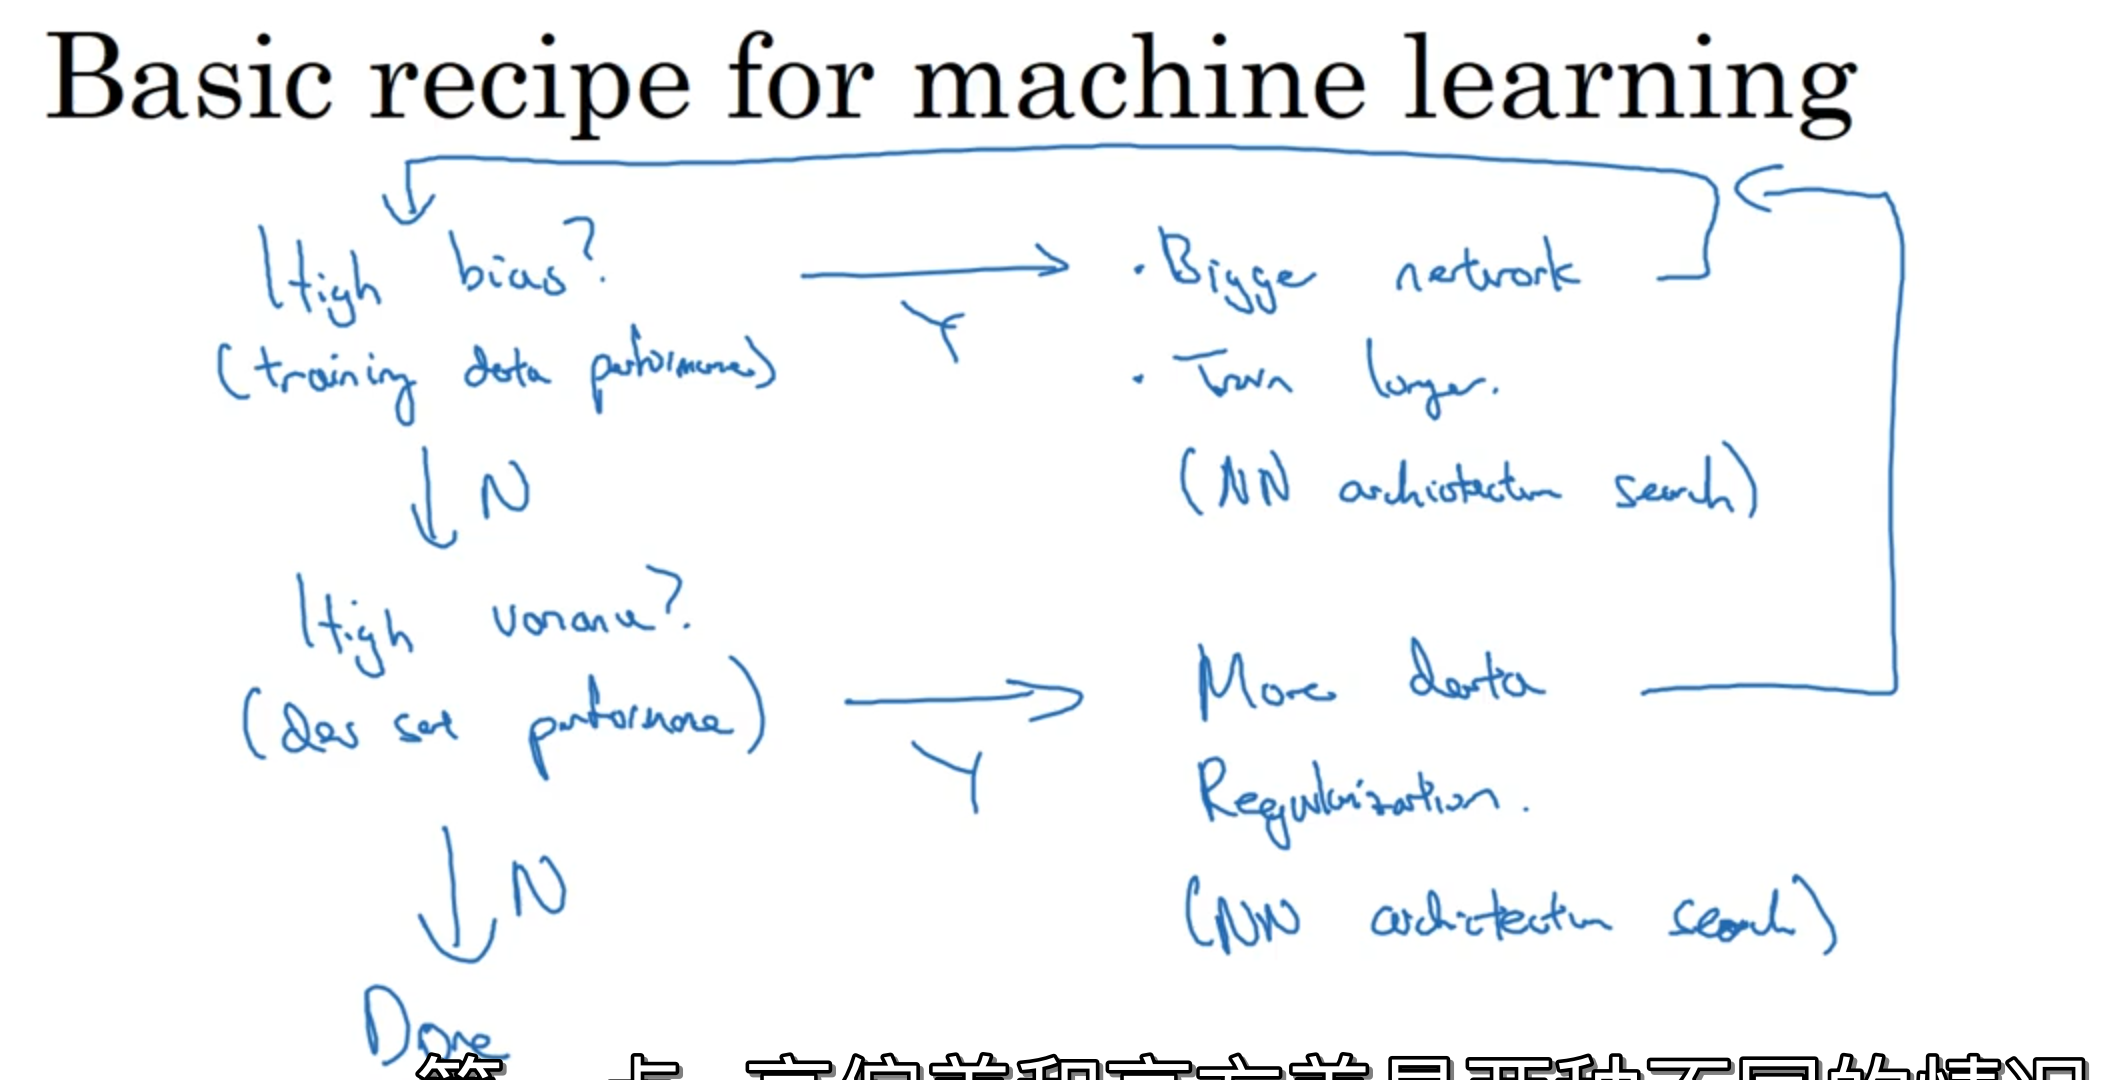 Basic recipe for machine learning
High bias?
(training data performance)
Y
· Bigger network
· Train longer.
(NN architecture search)
N
High variance?
(dev set performance)
Y
More data
Regularization.
(NN architecture search)
N
Done
第一点 高偏差和高方差是两种不同的情况